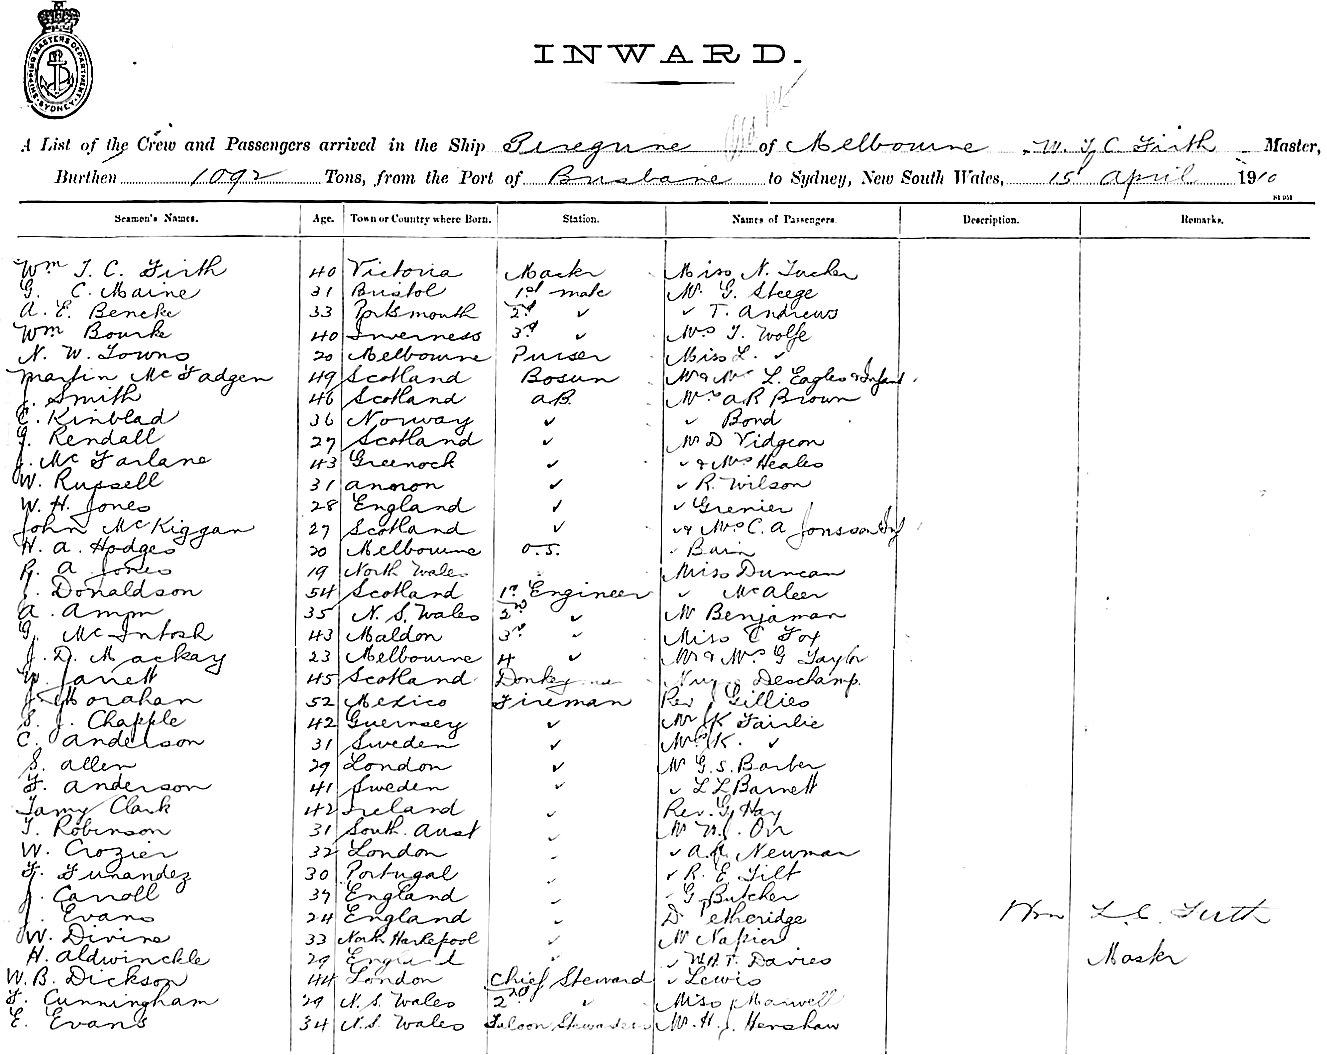 SHIPPING MASTERS DEPARTMENT SYDNEY
INWARD.
A List of the Crew and Passengers arrived in the Ship Peregrine of Melbourne, W. T. C. Firth Master,
Burthen 1092 Tons, from the Port of Brisbane to Sydney, New South Wales, 15 April 1910
Seamen's Names. Age. Town or Country where Born. Station. Names of Passengers. Description. Remarks.
Wm T. C. Firth 40 Victoria Master Miss N. Tucker
G. C. Maine 31 Bristol 1st mate Mr G. Steege
A. E. Beneke 33 Portsmouth 2nd ✓ ✓ T. Andrews
Wm Bourke 40 Inverness 3rd ✓ Mrs T. Wolfe
N. W. Towns 20 Melbourne Purser Miss L. ✓
Martin McFadgen 49 Scotland Bosun Mr & Mrs L. Eagles & Infant
J. Smith 46 Scotland A.B. Mrs A R Brown
C. Kinblad 36 Norway ✓ ✓ Bond
G. Rendall 27 Scotland ✓ Mr D Vidgeon
J. McFarlane 43 Greenock ✓ ✓ & Mrs Heales
W. Russell 31 ✓ ✓ R. Wilson
W. H. Jones 28 England ✓ ✓ Grenier
John McKiggan 27 Scotland ✓ ✓ & Mrs C. A Jonsson Inf
H. A. Hodges 20 Melbourne O.S. ✓ Bain
R. A Jones 19 North Wales Miss Duncan
J. Donaldson 54 Scotland 1st Engineer ✓ McAleer
A. 35 N. S. Wales 2nd ✓ Mr Benjaman
G. McIntosh 43 Maldon 3rd ✓ Miss C Fox
J. D. Mackay 23 Melbourne 4 ✓ Mr & Mrs G Taylor
Jarrett 45 Scotland Donkeyman Deschamp.
J. Morahan 52 Mexico Fireman Rev J Gillies
S. J. Chapple 42 Guernsey ✓ Mr K Fairlie
C. Anderson 31 Sweden ✓ Mrs K. ✓
S. Allen 29 London ✓ Mr G. S. Barber
F. Anderson 41 Sweden ✓ ✓ L L Barnett
Clark 42 Ireland ✓ Rev. G. Hay
T. Robinson 31 South Aust ✓ Mr Orr
W. Crozier 32 London ✓ ✓ Newman
F. Funandez 30 Portugal ✓ ✓ R. E Tilt
J. Carroll 37 England ✓ ✓ G Butcher
J. Evans 24 England ✓ D Etheridge Wm T. C. Firth
W. Divine 33 North Hartlepool ✓ Mr Napier
H. Aldwinckle 29 England ✓ ✓ W. A. T. Davies Master
W. B. Dickson 44 London Chief Steward ✓ Lewis
F. Cunningham 29 N. S. Wales 2nd ✓ Miss Maxwell
E. Evans 34 N. S. Wales Saloon Mr. H. J. Henshaw